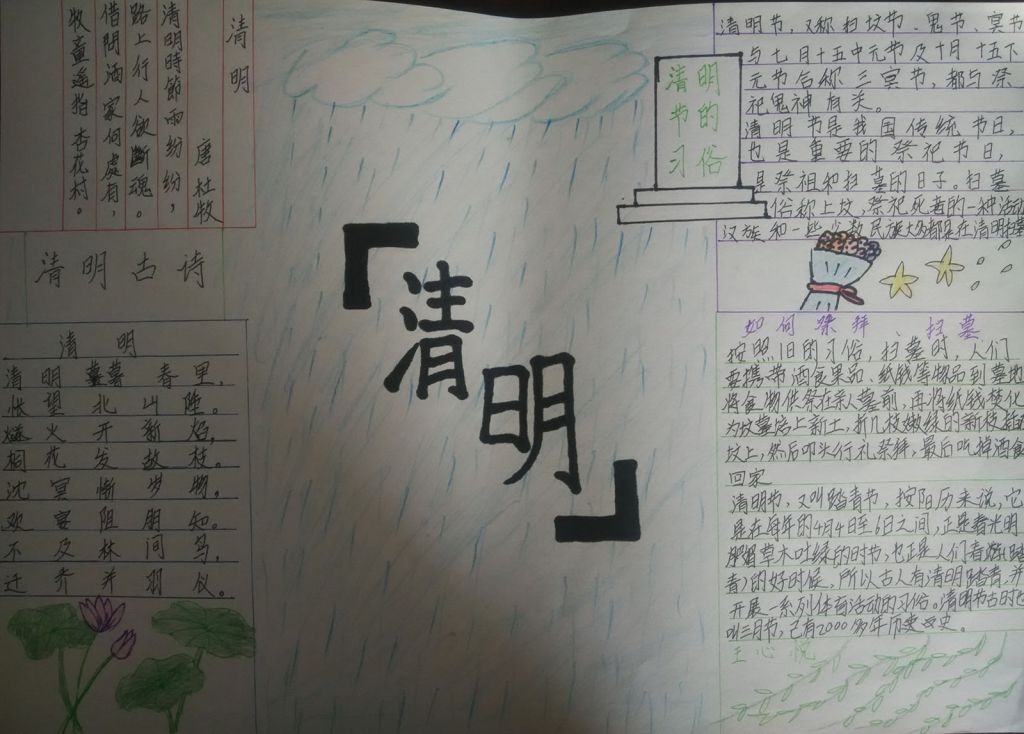 清明
唐 杜牧
清明時節雨紛紛，
路上行人欲斷魂。
借問酒家何處有，
牧童遥指杏花村。
清明古诗
清明
清明 春里，
怅望北山陲。
燧火开新焰，
桐花发故枝。
沈冥惭岁物，
欢宴阻朋知。
不及林间鸟，
迁乔并羽仪。
「清明」
清明
节的
习俗
清明节，又称扫坟节、鬼节、冥节
与七月十五中元节及十月十五下
元节合称三冥节，都与祭
祀鬼神有关。
清明节是我国传统节日，
也是重要的祭祀节日，
是祭祖和扫墓的日子。扫墓
俗称上坟，祭祀死者的一种活动
汉族和一些 民族大多都是在清明扫墓
如何祭拜 扫墓
按照旧的习俗，扫墓时，人们
要携带酒食果品、纸钱等物品到墓地
将食物供祭在亲人墓前，再将纸钱焚化
为坟墓培上新土，折几枝嫩绿的新枝插在
坟上，然后叩头行礼祭拜，最后吃掉酒食
回家
清明节，又叫踏青节，按阳历来说，它
是在每年的4月4日至6日之间，正是春光明
媚草木吐绿的时节，也正是人们春游(踏
青)的好时候，所以古人有清明踏青，并
开展一系列体育活动的习俗。清明节古时也
叫三月节，已有2000多年历史。
王心悦